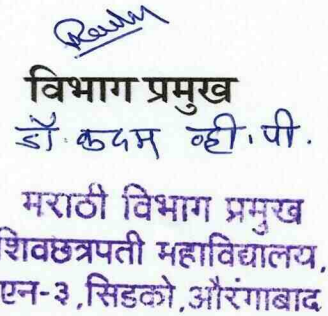 विभाग प्रमुख
डॉ. कदम व्ही. पी.
मराठी विभाग प्रमुख
शिवछत्रपती महाविद्यालय,
एन-३,सिडको,औरंगाबाद